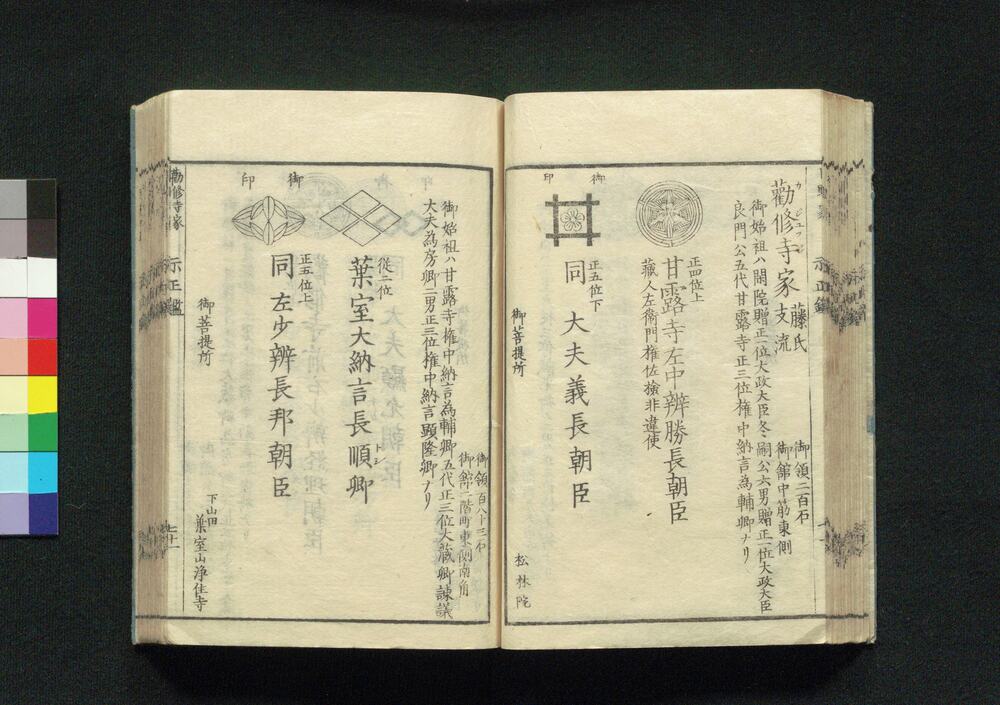 勸修寺家 藤氏支流
御領二百石
御舘中筋東側
御始祖ハ閑院贈正一位大政大臣冬嗣公六男贈正一位大政大臣
良門公五代甘露寺正三位権中納言為輔卿ナリ
正四位上
甘露寺左中辨勝長朝臣
藏人左衛門権佐檢非違使
御印
正五位下
同 大夫義長朝臣
御菩提所
松林院
御領百八十三石
御舘二階町東側南角
御始祖ハ甘露寺権中納言為輔卿五代正三位大藏卿諫議
大夫為房卿二男正三位権中納言顕隆卿ナリ
従二位
葉室大納言長順卿
御印
正五位上
同 左少辨長邦朝臣
御菩提所
下山田
葉室山浄住寺
勸修寺家
七十一